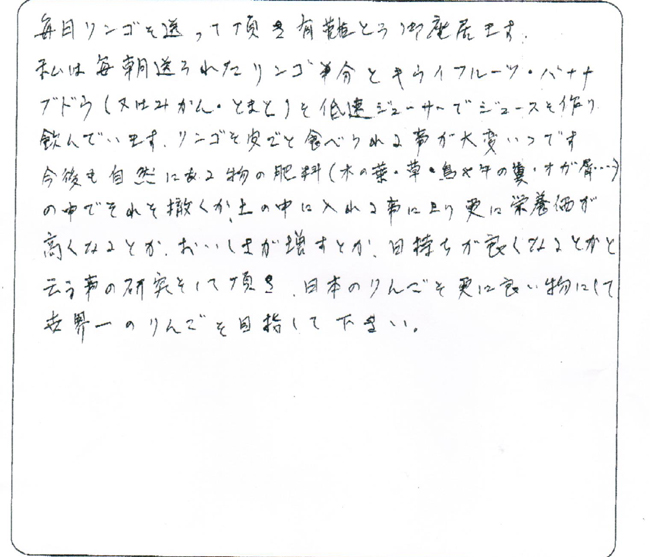 毎日リンゴを送って頂き有難とう御座居ます。
私は毎朝送られたリンゴ半分とキウイフルーツ・バナナ
ブドウ(又はみかん・とまと)を低速ジューサーでジュースを作り
飲んでいます。リンゴを皮ごと食べられる事が大変いゝです
今後も自然にある物の肥料(木の葉・草・鳥や牛の糞・オガ屑…)
の中でそれを撒くか、土の中に入れる事に より更に栄養価が
高くなるとか、おいしさが増すとか、日持ちが良くなるとかと
云う事の研究をして頂き、日本のりんごを更に良い物にして
世界一のりんごを目指して下さい。